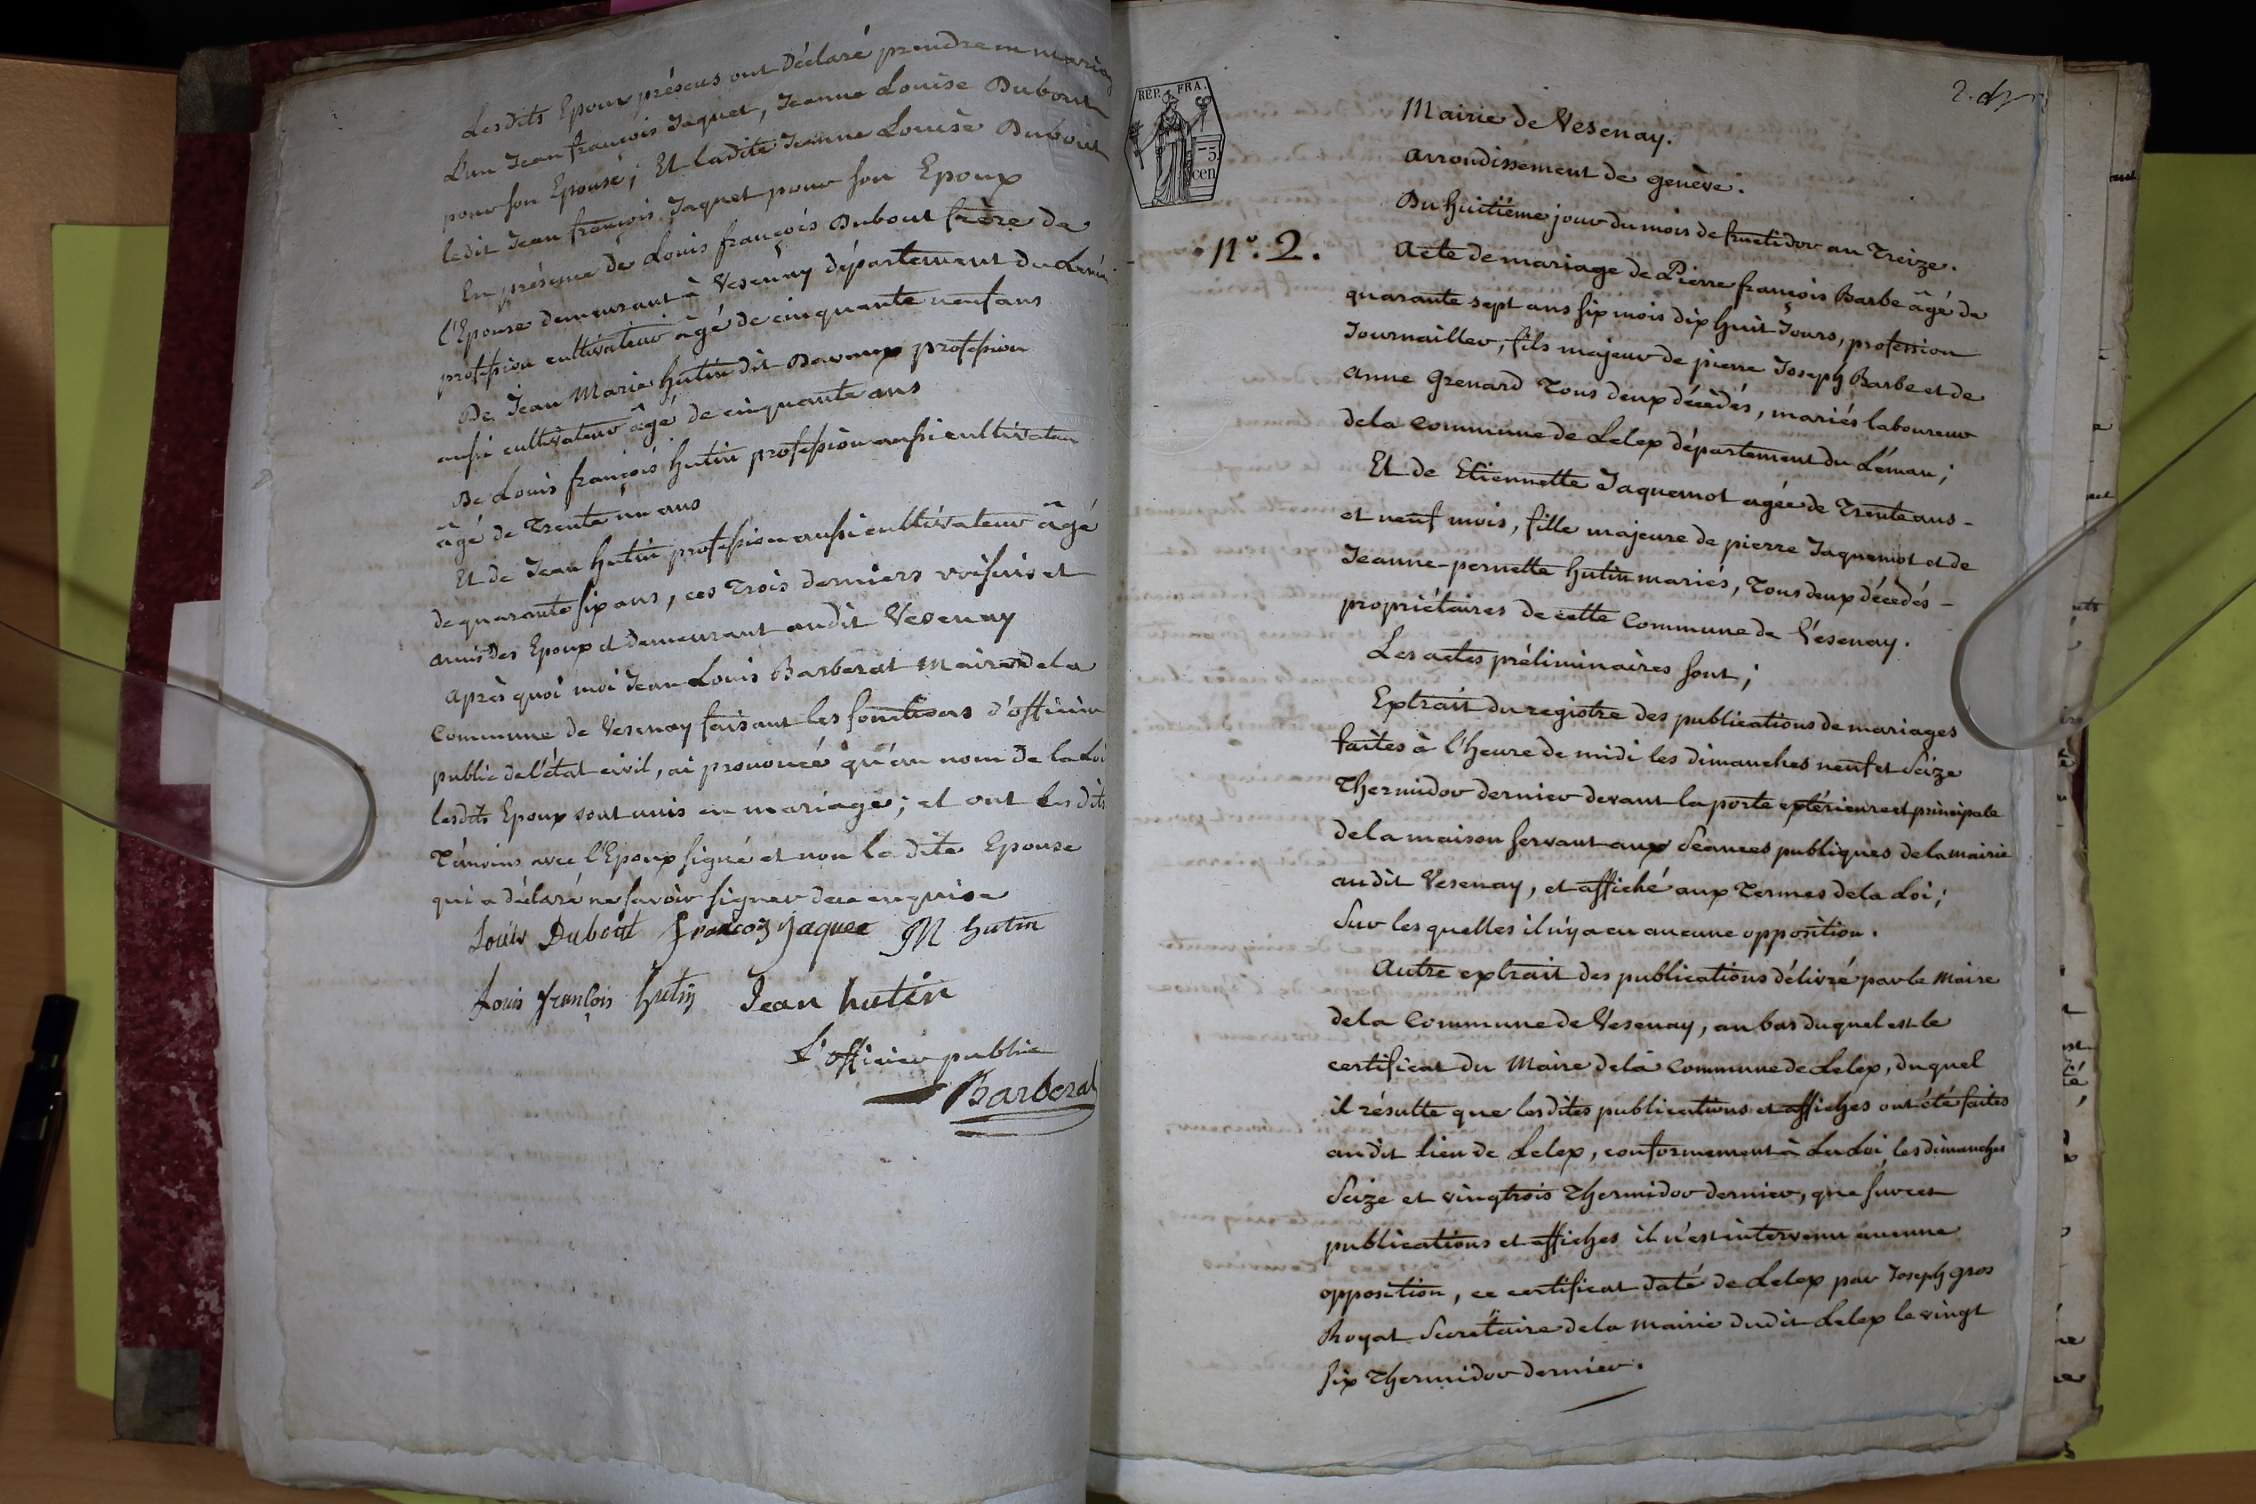 Lesdits Epoux présens ont Déclaré prendre en mariag
L'un Jean françois Jaquet, Jeanne Louise Dubout
pour son Epouse; Et ladite Jeanne Louise Dubout
ledit Jean françois Jaquet pour son Epoux
En présence de Louis françois Dubout frère de
l'Epouse demeurant à Vesenay département du Lém
profession cultivateur âgé de cinquante neuf ans
De Jean Marie hutin dit profession
aussi cultivateur âgé de cinquante ans
De Louis françois hutin profession aussi cultivateu
âgé de Trente un ans
Et de Jean hutin profession aussi cultivateur âgé
de quarante six ans, ces Trois derniers voisins et
amis des Epoux et demeurant audit Vesenay
après quoi moi Jean Louis Barberat Maire de la
Commune de Vesenay faisant les fonctions d'officier
public de l'état civil, ai prononcé qu'au nom de la Loi
lesdits Epoux sont unis en mariage; et ont lesdits
Témoins avec l'Epoux signé et non la dite Epouse
qui a déclaré ne savoir signer de ce enquise
Louis Dubout françois jaquet JM hutin
Louis françois hutin Jean hutin
L'officier public
Barberat
REP. FRA.
75
cen
2.
Mairie de Vesenay.
arrondissement de genève.
Du huitième jour du mois de fructidor an Treize.
N°. 2.
Acte de mariage de Pierre françois Barbe âgé de
quarante sept ans six mois dix huit Jours, profession
Journaillier, fils majeur de pierre Joseph Barbe et de
anne Grenard Tous deux décèdés, mariés laboureur
de la Commune de Lelex département du Léman;
Et de Etiennette Jaquemot agée de Trente ans -
et neuf mois, fille majeure de pierre Jaquemot et de
Jeanne-pernette hutin mariés, Tous deux décédés -
propriétaires de cette Commune de Vesenay.
Les actes préliminaires sont;
Extrait du registre des publications de mariages
faites à l'heure de midi les dimanches neuf et Seize
Thermidor dernier devant la porte extérieure et principale
de la maison servant aux Séances publiques de la mairie
audit Vesenay, et affiché aux Termes de la Loi;
Sur les quelles il n'y a eu aucune opposition.
Autre extrait des publications délivré par le Maire
de la Commune de Vesenay, au bas duquel est le
certificat du Maire de la Commune de Lelex, duquel
il résulte que lesdites publications et affiches ont été faites
audit lieu de Lelex, conformement à La Loi, les dimanches
Seize et vingtrois Thermidor dernier, que sur ces
publications et affiches il n'est intervenu aucune
opposition, ce certificat daté de Lelex par Joseph gros
Royat Secrétaire de la Mairie dudit Lelex le vingt
six Thermidor dernier.